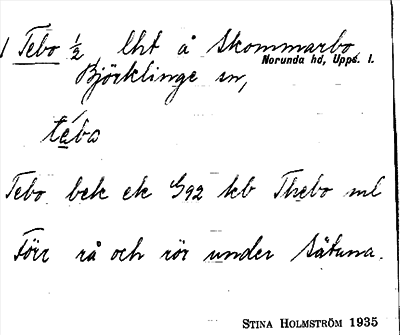 1 Tebo ½ lht å Skommarbo,
Norunda hd, Upps. l.
Björklinge sn,
tèbo
Tebo bek ek 4/92 kb Thebo ml
Förr rå och rör under Sätuna.
STINA HOLMSTRÖM 1935